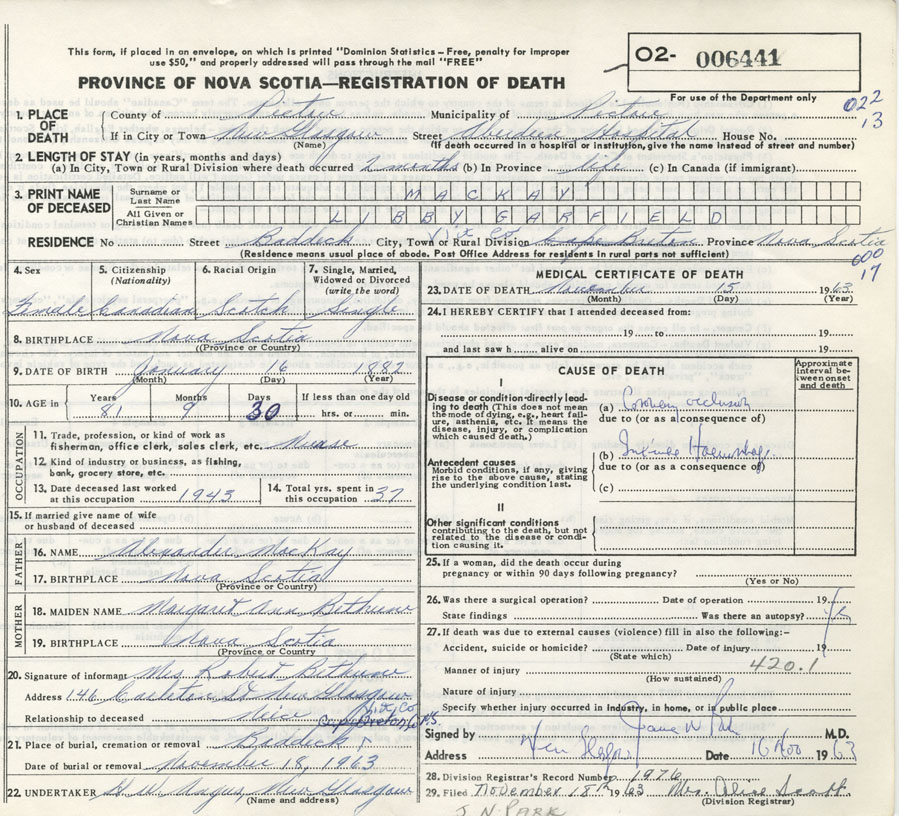 This form, if placed in an envelope, on which is printed "Dominion Statistics – Free, penalty for improper
use $50," and properly addressed will pass through the mail "FREE"
O2- 006441
PROVINCE OF NOVA SCOTIA—REGISTRATION OF DEATH
For use of the Department only
022
13
1. PLACE OF DEATH { County of Pictou Municipality of Pictou
If in City or Town New Glasgow Street Aberdeen Hospital House No.
(Name) (If death occurred in a hospital or institution, give the name instead of street and number)
2. LENGTH OF STAY (in years, months and days)
(a) In City, Town or Rural Division where death occurred 2 months (b) In Province Life (c) In Canada (if immigrant)
3. PRINT NAME OF DECEASED { Surname or Last Name MACKAY
All Given or Christian Names LIBBY GARFIELD
RESIDENCE No Street Baddeck City, Town or Rural Division Vict Co Cape Breton Province Nova Scotia
(Residence means usual place of abode. Post Office Address for residents in rural parts not sufficient)
000
17
4. Sex Female
5. Citizenship (Nationality) Canadian
6. Racial Origin Scotch
7. Single, Married, Widowed or Divorced (write the word) Single
8. BIRTHPLACE Nova Scotia
((Province or Country)
9. DATE OF BIRTH January 16 1882
(Month) (Day) (Year)
10. AGE in { Years 81 Months 9 Days 30 If less than one day old
hrs. or min.
OCCUPATION
11. Trade, profession, or kind of work as
fisherman, office clerk, sales clerk, etc. Nurse
12. Kind of industry or business, as fishing,
bank, grocery store, etc.
13. Date deceased last worked at this occupation 1943
14. Total yrs. spent in this occupation 37
15. If married give name of wife
or husband of deceased
FATHER
16. NAME Alexander MacKay
17. BIRTHPLACE Nova Scotia
(Province or Country)
MOTHER
18. MAIDEN NAME Margaret Ann Bethune
19. BIRTHPLACE Nova Scotia
Province or Country)
20. Signature of informant Mrs Robert Bethune
Address 146 Carleton St New Glasgow
Relationship to deceased Niece
21. Place of burial, cremation or removal Baddeck Vict Co Cape Breton N.S.
Date of burial or removal November 18, 1963
22. UNDERTAKER H. W. Angus, New Glasgow
(Name and address)
MEDICAL CERTIFICATE OF DEATH
23. DATE OF DEATH November 15 1963
(Month) (Day)
24. I HEREBY CERTIFY that I attended deceased from:
19 to 19
and last saw h alive on 19
CAUSE OF DEATH
Approximate interval between onset and death
I
Disease or condition directly leading to death (This does not mean the mode of dying, e.g., heart failure, asthenia, etc. It means the disease, injury, or complication which caused death.)
(a) Coronary occlusion
due to (or as a consequence of)
Antecedent causes
Morbid conditions, if any, giving rise to the above cause, stating the underlying condition last.
(b)
due to (or as a consequence of)
(c)
II
Other significant conditions
contributing to the death, but not related to the disease or condition causing it.
25. If a woman, did the death occur during
pregnancy or within 90 days following pregnancy?
(Yes or No)
26. Was there a surgical operation? Date of operation 19
State findings Was there an autopsy?
27. If death was due to external causes (violence) fill in also the following:-
Accident, suicide or homicide? Date of injury 19
(State which)
Manner of injury 420.1
(How sustained)
Nature of injury
Specify whether injury occurred in Industry, in home, or in public place
Signed by James N Park M.D.
Address New Glasgow Date 16 Nov 1963
28. Division Registrar's Record Number 1976
29. Filed November 18th 1963 Mrs. Alice Scott
(Division Registrar)
J N. PARK